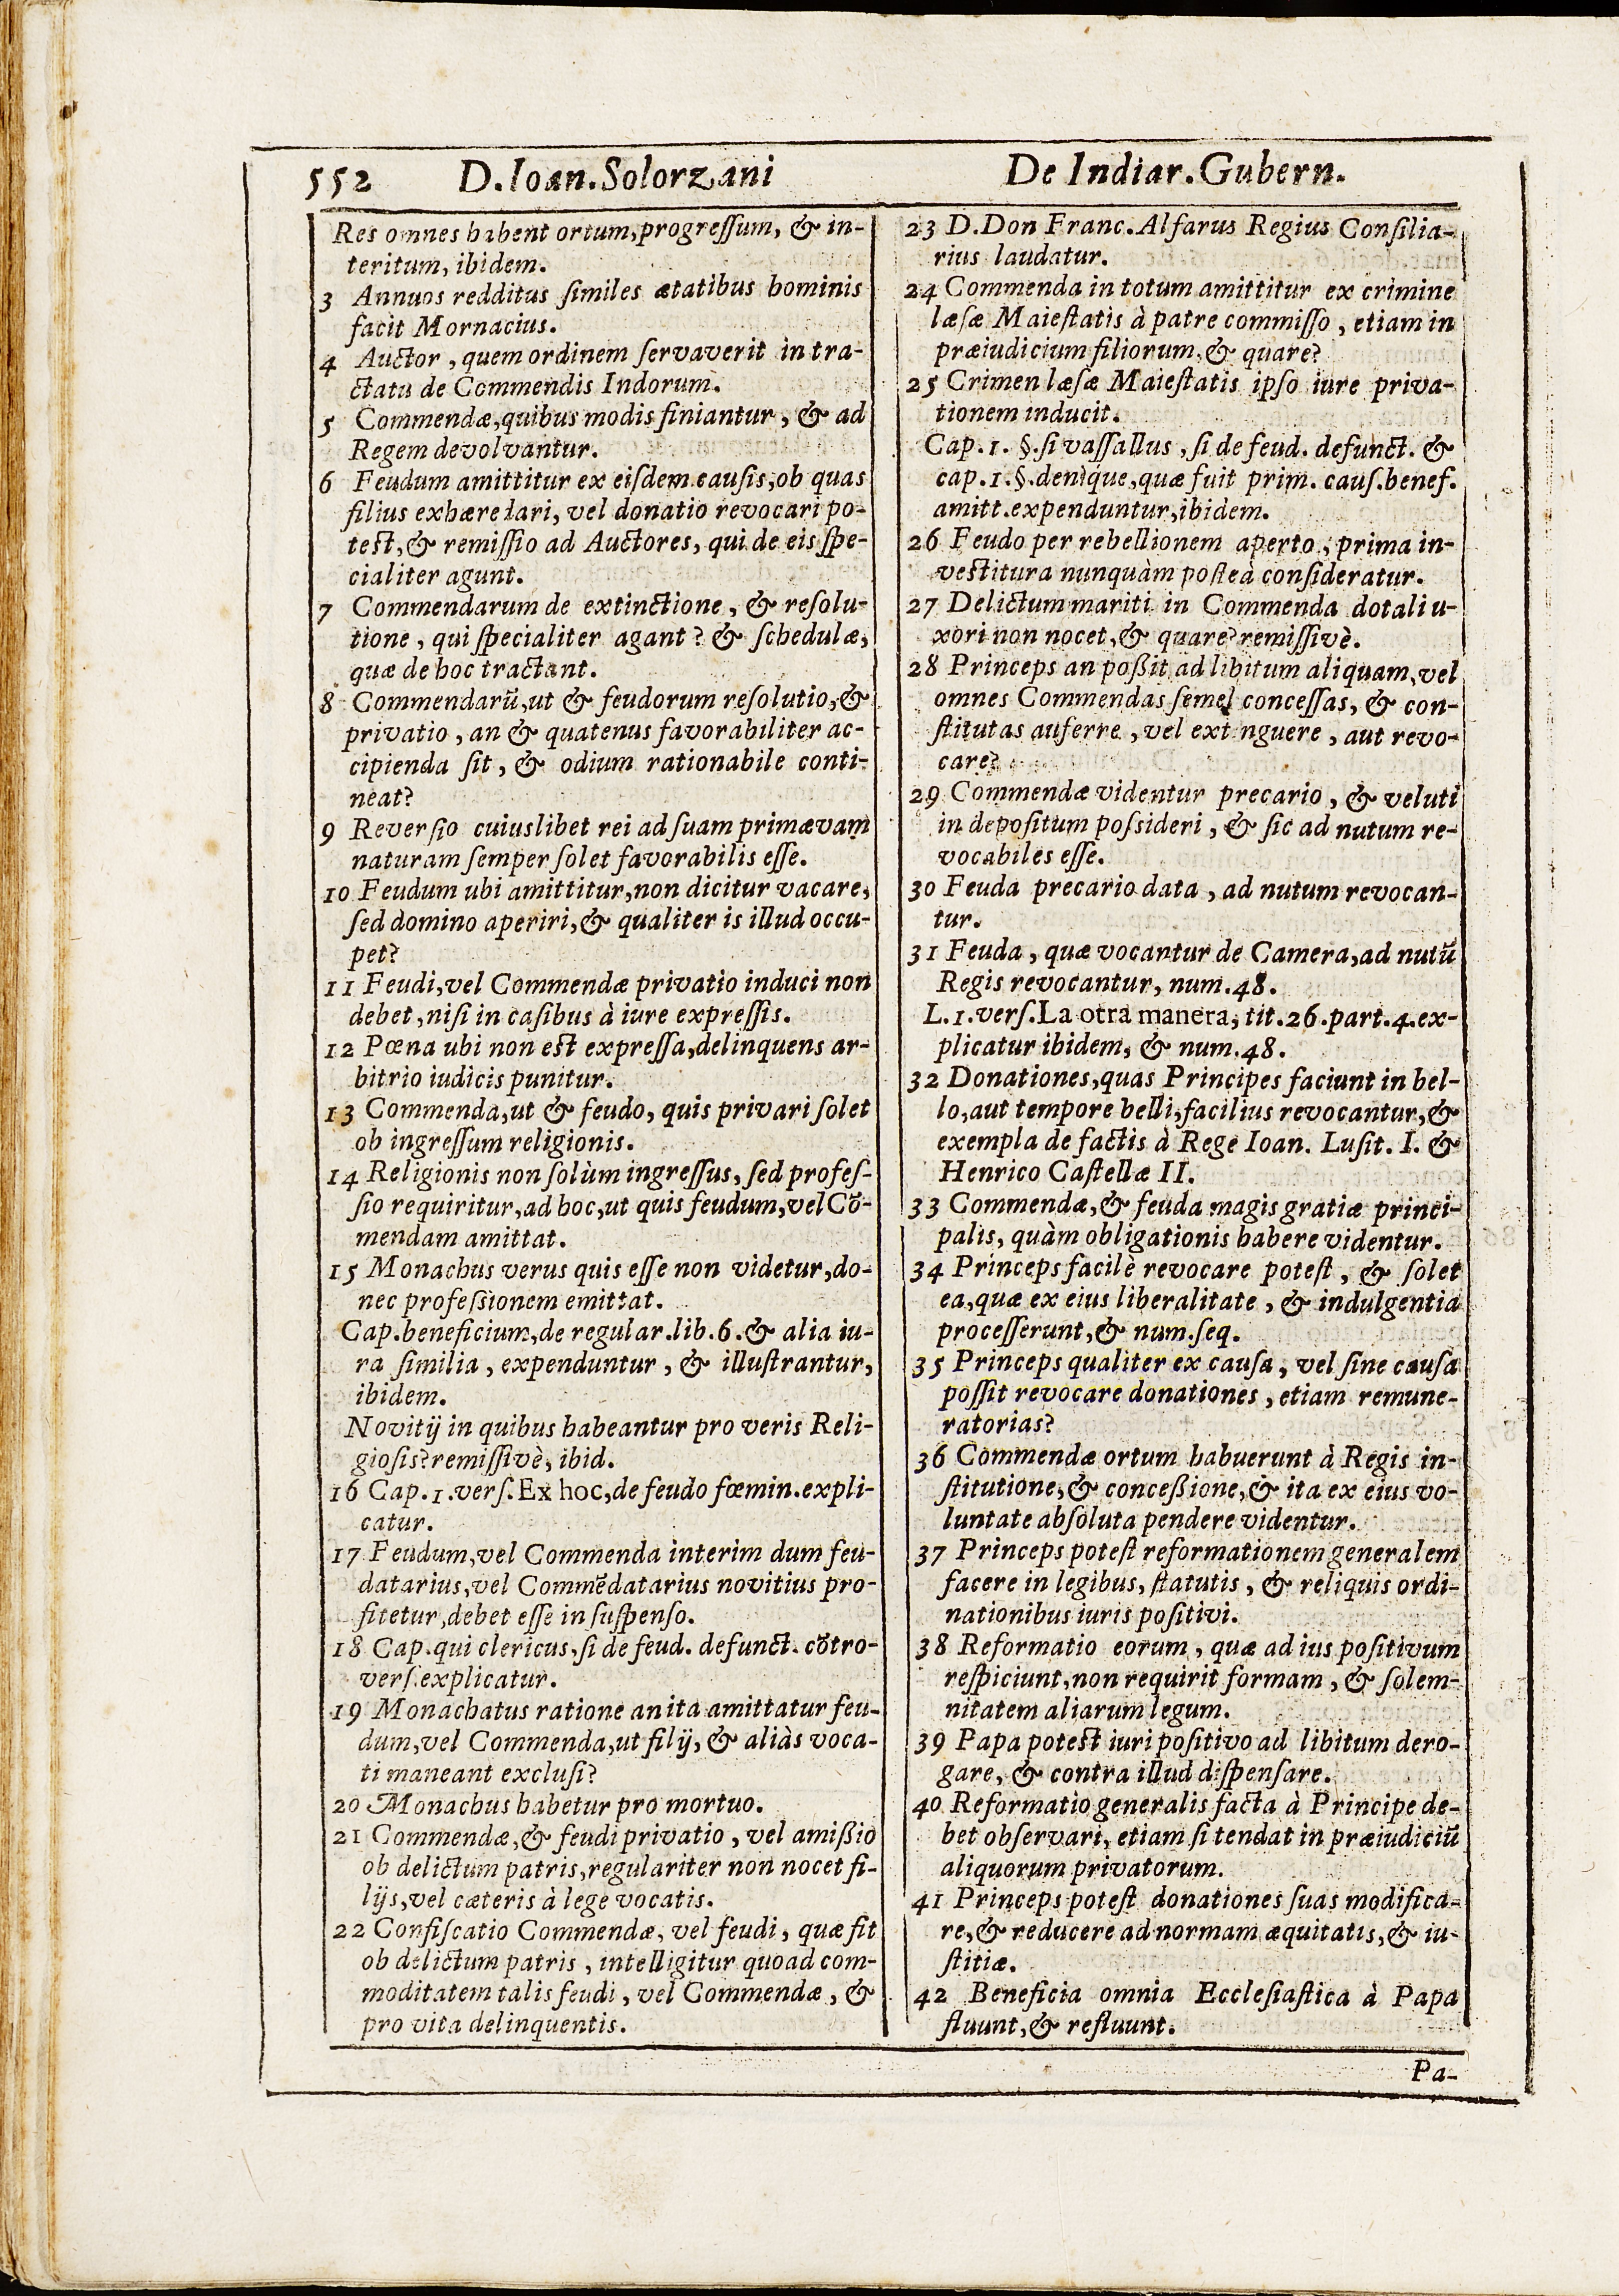 552 D.Ioan.Solorzani De Indiar.Gubern.
Res omnes habent ortum,progreſſum, & in-
teritum, ibidem.
3 Annuos redditus ſimiles ætatibus hominis
facit Mornacius.
4 Auctor, quem ordinem ſervaverit in tra-
ctatu de Commendis Indorum.
5 Commendæ,quibus modis finiantur, & ad
Regem devolvantur.
6 Feudum amittitur ex eiſdem cauſis,ob quas
filius exhæredari, vel donatio revocari po-
test,& remiſſio ad Auctores, qui de eis ſpe-
cialiter agunt.
7 Commendarum de extinctione, & reſolu-
tione, qui ſpecialiter agant? & ſchedulæ,
quæ de hoc tractant.
8 Commendarū,ut & feudorum reſolutio,&
privatio, an & quatenus favorabiliter ac-
cipienda ſit, & odium rationabile conti-
neat?
9 Reverſio cuiuslibet rei ad ſuam primævam
naturam ſemper ſolet favorabilis eſſe.
10 Feudum ubi amittitur,non dicitur vacare,
ſed domino aperiri,& qualiter is illud occu-
pet?
11 Feudi,vel Commendæ privatio induci non
debet,niſi in caſibus à iure expreſſis.
12 Pœna ubi non est expreſſa,delinquens ar-
bitrio iudicis punitur.
13 Commenda,ut & feudo, quis privari ſolet
ob ingreſſum religionis.
14 Religionis non ſolùm ingreſſus, ſed profeſ-
ſio requiritur,ad hoc,ut quis feudum,vel Cō-
mendam amittat.
15 Monachus verus quis eſſe non videtur,do-
nec profeſsionem emittat.
Cap.beneficium,de regular.lib.6.& alia iu-
ra ſimilia, expenduntur, & illuſtrantur,
ibidem.
Novitij in quibus habeantur pro veris Reli-
gioſis?remiſſivè, ibid.
16 Cap.1.verſ.Ex hoc,de feudo fœmin.expli-
catur.
17 Feudum,vel Commenda interim dum feu-
datarius,vel Commēdatarius novitius pro-
fitetur,debet eſſe in ſuſpenſo.
18 Cap.qui clericus,ſi de feud. defunct. cōtro-
verſ.explicatur.
19 Monachatus ratione an ita amittatur feu-
dum,vel Commenda,ut filij, & aliàs voca-
ti maneant excluſi?
20 Monachus habetur pro mortuo.
21 Commendæ,& feudi privatio, vel amißio
ob delictum patris,regulariter non nocet fi-
lijs,vel cæteris à lege vocatis.
22 Confiſcatio Commendæ, vel feudi, quæ fit
ob delictum patris, intelligitur quoad com-
moditatem talis feudi, vel Commendæ, &
pro vita delinquentis.
23 D.Don Franc.Alfarus Regius Conſilia-
rius laudatur.
24 Commenda in totum amittitur ex crimine
læſæ Maieſtatis à patre commiſſo, etiam in
præiudicium filiorum,& quare?
25 Crimen læſæ Maieſtatis ipſo iure priva-
tionem inducit.
Cap.1. §.ſi vaſſallus, ſi de feud. defunct. &
cap.1.§.denique,quæ fuit prim. cauſ.benef.
amitt.expenduntur,ibidem.
26 Feudo per rebellionem aperto, prima in-
vestitura nunquàm poſteà conſideratur.
27 Delictum mariti in Commenda dotali u-
xori non nocet,& quare?remiſſivè.
28 Princeps an poßit ad libitum aliquam, vel
omnes Commendas ſemel conceſſas, & con-
ſtitutas auferre, vel ext nguere, aut revo-
care?
29 Commendæ videntur precario, & veluti
in depoſitum poſsideri, & ſic ad nutum re-
vocabiles eſſe.
30 Feuda precario data, ad nutum revocan-
tur.
31 Feuda, quæ vocantur de Camera,ad nutū
Regis revocantur, num.48.
L.1.verſ.La otra manera, tit.26.part.4.ex-
plicatur ibidem, & num.48.
32 Donationes,quas Principes faciunt in bel-
lo,aut tempore belli,facilius revocantur,&
exempla de factis à Rege Ioan. Luſit. I. &
Henrico Caſtellæ II.
33 Commendæ,& feuda magis gratiæ princi-
palis, quàm obligationis habere videntur.
34 Princeps facilè revocare poteſt, & ſolet
ea,quæ ex eius liberalitate, & indulgentia
proceſſerunt,& num.ſeq.
35 Princeps qualiter ex cauſa, vel ſine cauſa
poſſit revocare donationes, etiam remune-
ratorias?
36 Commendæ ortum habuerunt à Regis in-
ſtitutione,& conceßione,& ita ex eius vo-
luntate abſoluta pendere videntur.
37 Princeps poteſt reformationem generalem
facere in legibus, ſtatutis, & reliquis ordi-
nationibus iuris poſitivi.
38 Reformatio eorum, quæ ad ius poſitivum
reſpiciunt,non requirit formam, & ſolem-
nitatem aliarum legum.
39 Papa potest iuri poſitivo ad libitum dero-
gare, & contra illud diſpenſare.
40 Reformatio generalis facta à Principe de-
bet obſervari, etiam ſi tendat in præiudiciū
aliquorum privatorum.
41 Princeps poteſt donationes ſuas modifica-
re,& reducere ad normam æquitatis,& iu-
ſtitiæ.
42 Beneficia omnia Eccleſiaſtica à Papa
fluunt,& refluunt.
Pa-